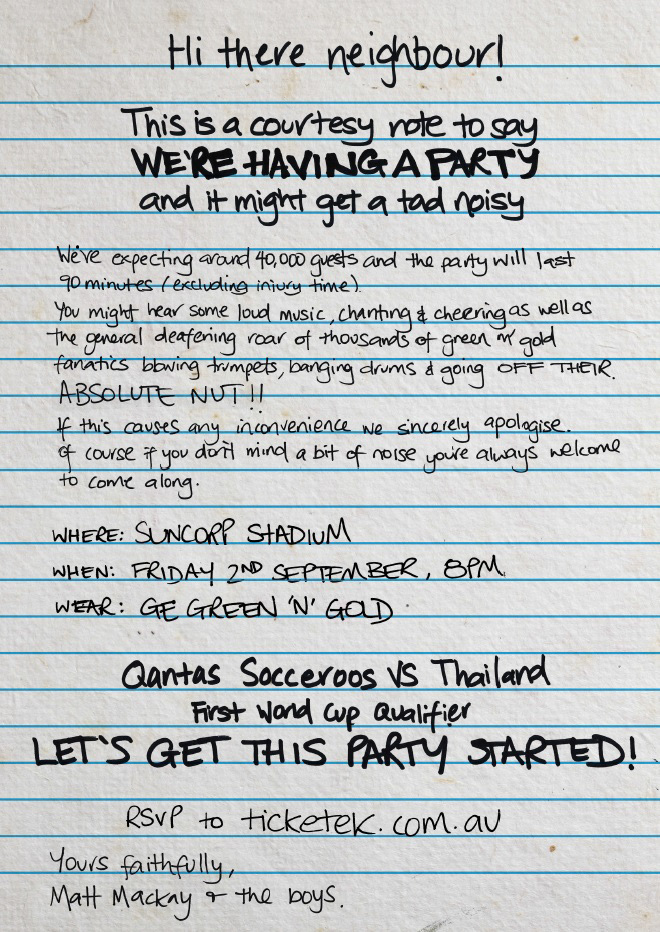 Hi there neighbour!
This is a courtesy note to say
WE'RE HAVING A PARTY
and it might get a tad noisy
We're expecting around 40,000 guests and the party will last
90 minutes (excluding injury time).
You might hear some loud music, chanting & cheering as well as
the general deafening roar of thousands of green n' gold
fanatics blowing trumpets, banging drums & going OFF THEIR
ABSOLUTE NUT!!
If this causes any inconvenience we sincerely apologise.
Of course if you don't mind a bit of noise you're always welcome
to come along.
WHERE: SUNCORP STADIUM
WHEN: FRIDAY 2ND SEPTEMBER, 8PM
WEAR: GE GREEN 'N' GOLD
Qantas Socceroos VS Thailand
First World Cup Qualifier
LET'S GET THIS PARTY STARTED!
RSVP to ticketek.com.au
Yours faithfully,
Matt Mackay & the boys.